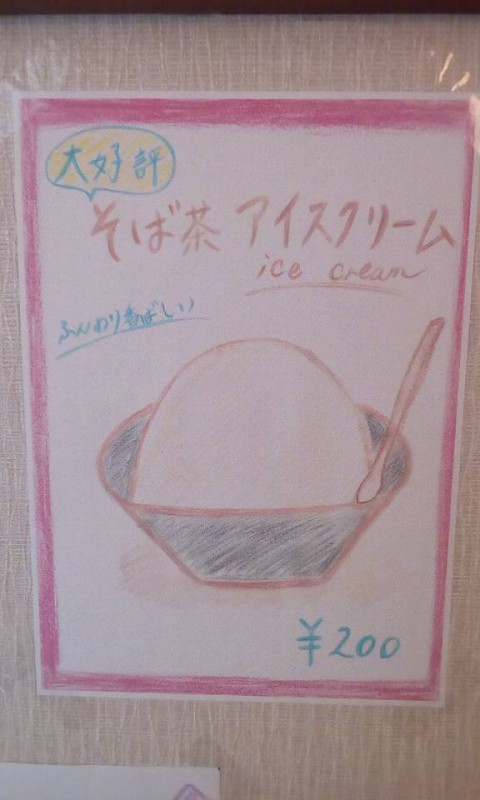 大好評
そば茶 アイスクリーム
ice cream
ふんわり香ばしい
¥200